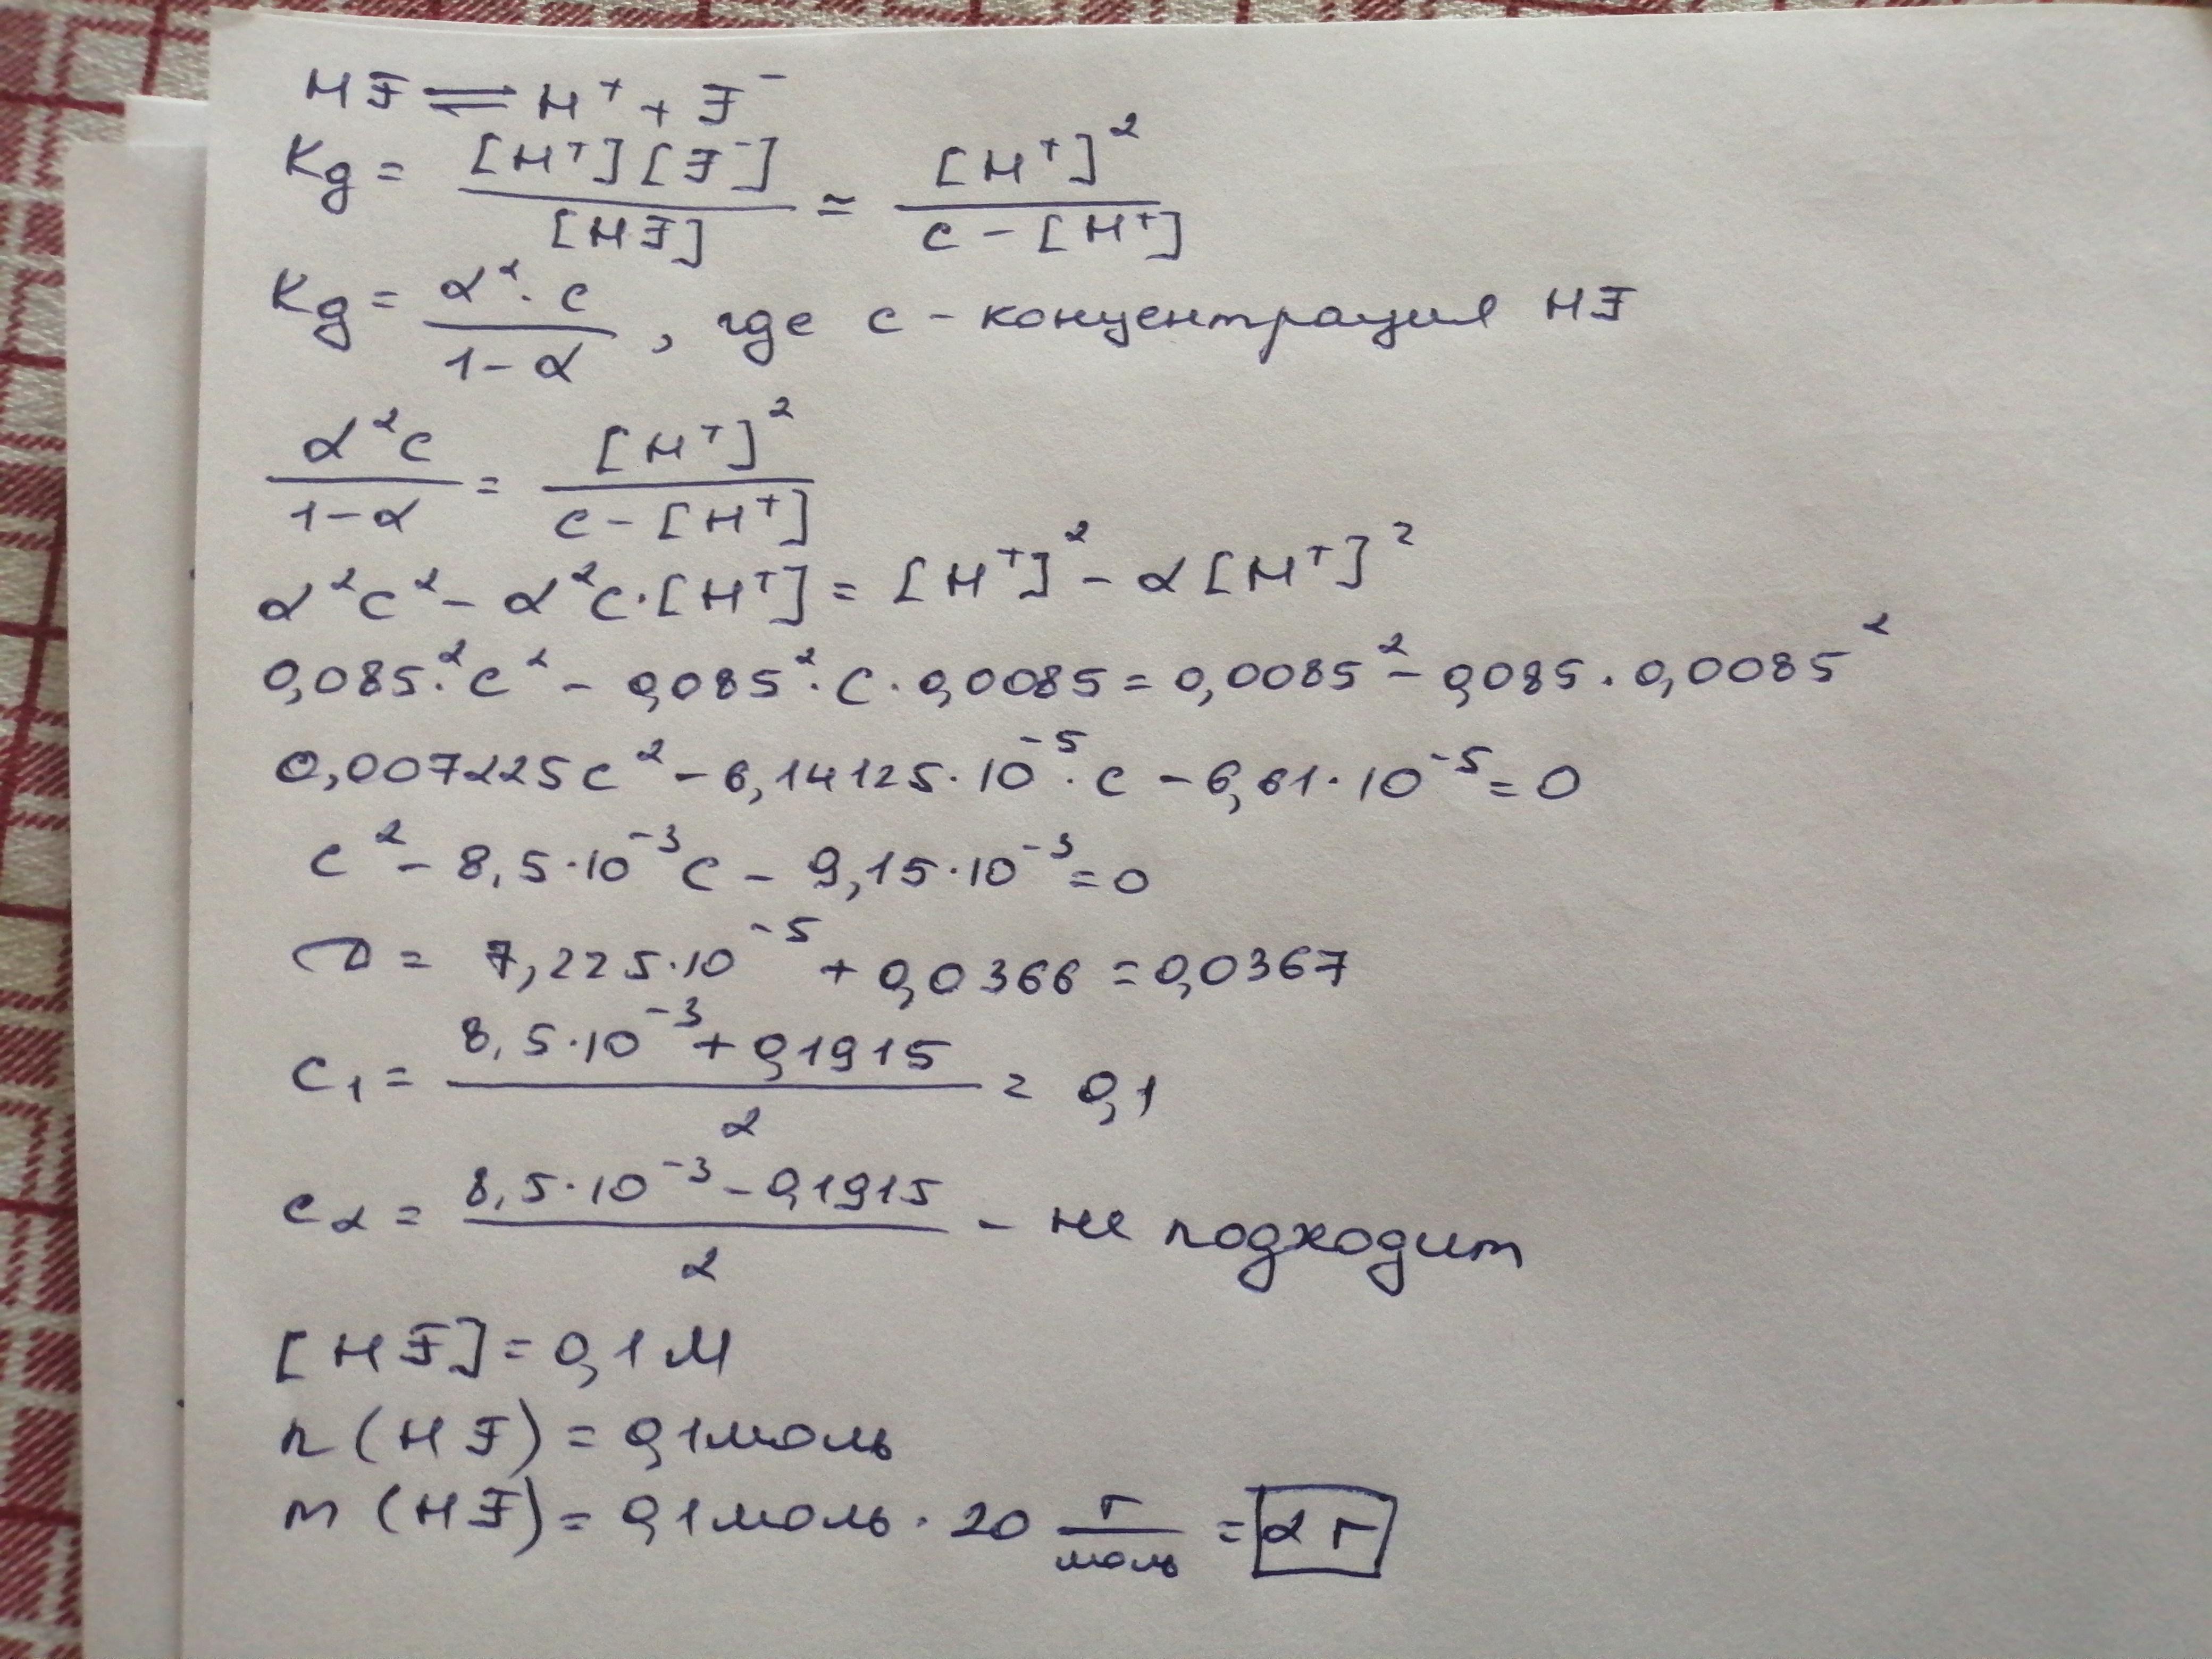 HF ⇌ H⁺ + F⁻
Kд = [H⁺][F⁻] / [HF] = [H⁺]² / c - [H⁺]
Kд = α²·c / 1-α , где c - концентрация HF
α²c / 1-α = [H⁺]² / c - [H⁺]
α²c² - α²c·[H⁺] = [H⁺]² - α[H⁺]²
0,085²·c² - 0,085²·c·0,0085 = 0,0085² - 0,085·0,0085²
0,007225c² - 6,14125·10⁻⁵·c - 6,61·10⁻⁵ = 0
c² - 8,5·10⁻³c - 9,15·10⁻³ = 0
D = 7,225·10⁻⁵ + 0,0366 = 0,0367
c₁ = 8,5·10⁻³ + 0,1915 / 2 = 0,1
c₂ = 8,5·10⁻³ - 0,1915 / 2 - не подходит
[HF] = 0,1 М
n(HF) = 0,1 моль
m(HF) = 0,1 моль · 20 г/моль = 2 г